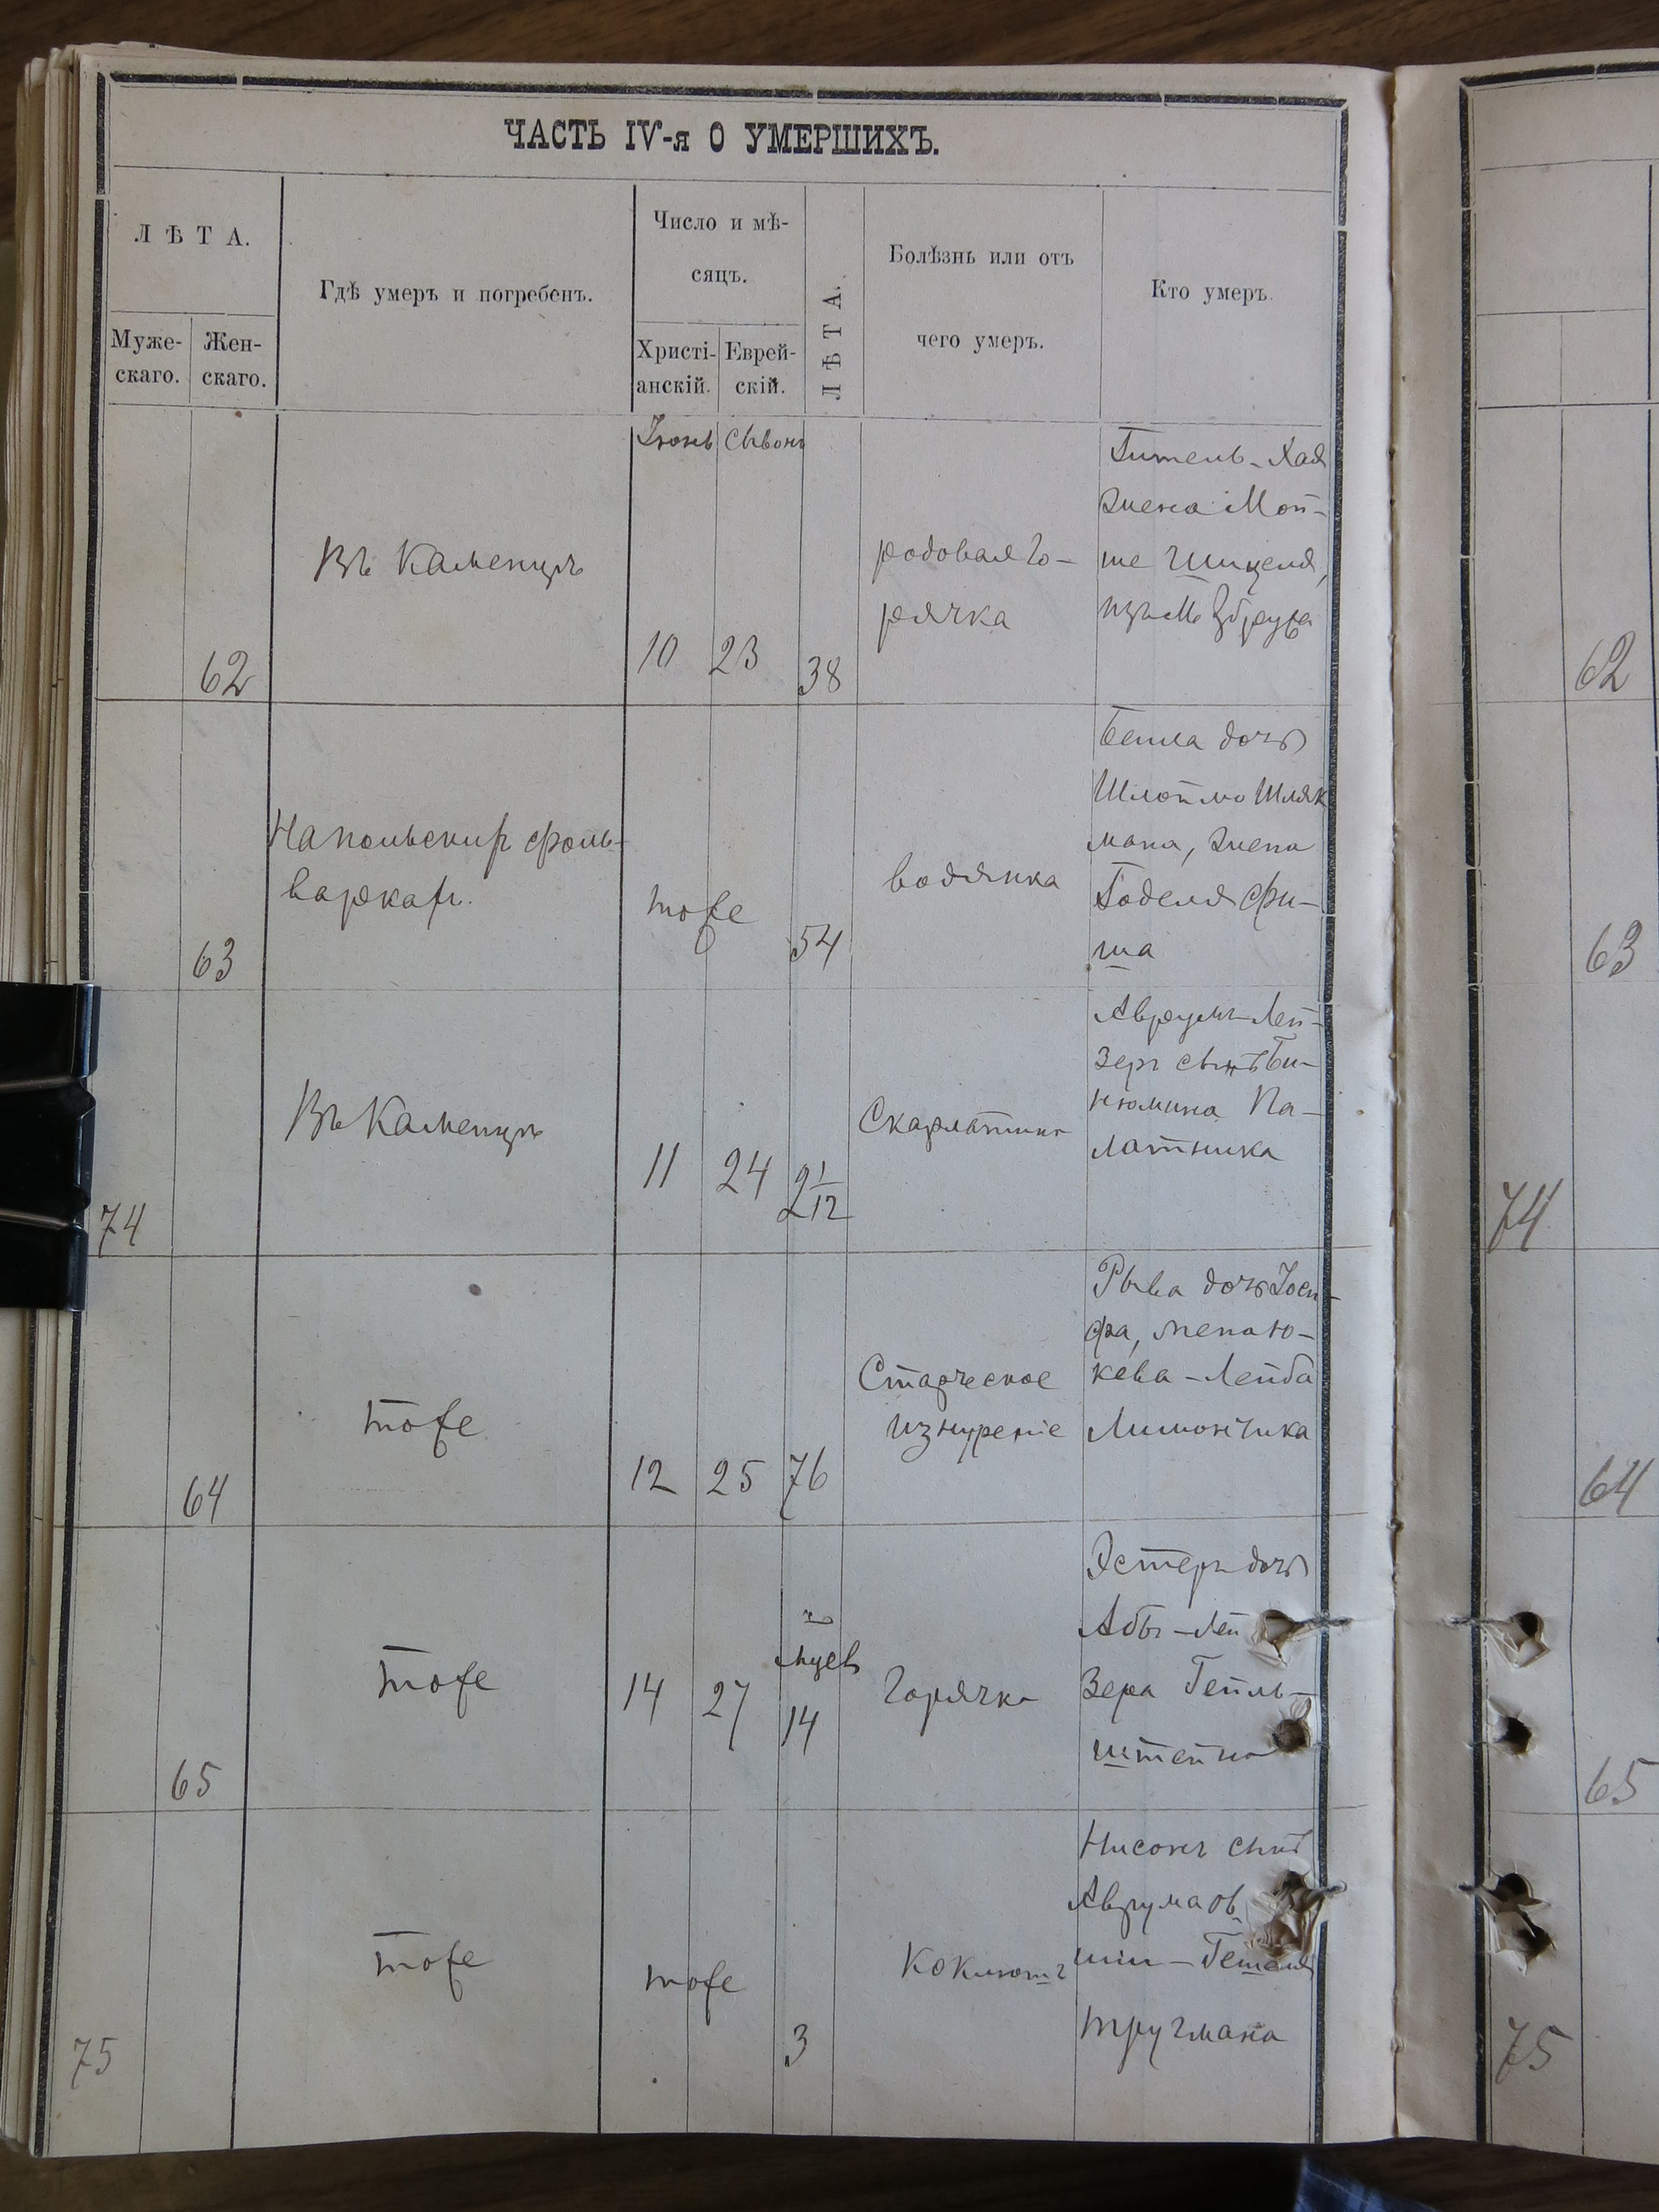 ЧАСТЬ IV-я О УМЕРШИХЪ.
ЛѢТА.
Муже-
скаго.
Жен-
скаго.
Гдѣ умеръ и погребенъ.
Число и мѣ-
сяцъ.
Христі-
анскій.
Еврей-
скій.
ЛѢТА.
Болѣзнь или отъ
чего умеръ.
Кто умеръ.
Іюнь Сывонъ
62
Въ Каменцѣ
10 23 38
родовая го-
рячка
Гитель-Хая
жена Мой-
ше Шицеля,
62
63
На польскихъ фоль-
варкахъ.
тоже
54
водянка
Бейла дочь
Шлоймо Шляк
мана, жена
Годеля Фи-
ша
63
74
Въ Каменцѣ
11 24 2 1/12
Скарлатина
Аврумъ-Лей-
зеръ сынъ Би-
нюмина Па-
латника
74
64
тоже
12 25 76
Старческое
изнуреніе
Рыва дочь Іоси-
фа, жена Ю-
кева-Лейба
Лимончика
64
65
тоже
14 27
мцев
14
Горячка
Эстеръ дочь
Абы-Лей
зера Гейль-
штейна
65
75
тоже
тоже
3
Коклюшъ
Нисонъ сынъ
Аврума Ов
шіи-Гешеля
Тругмана
75